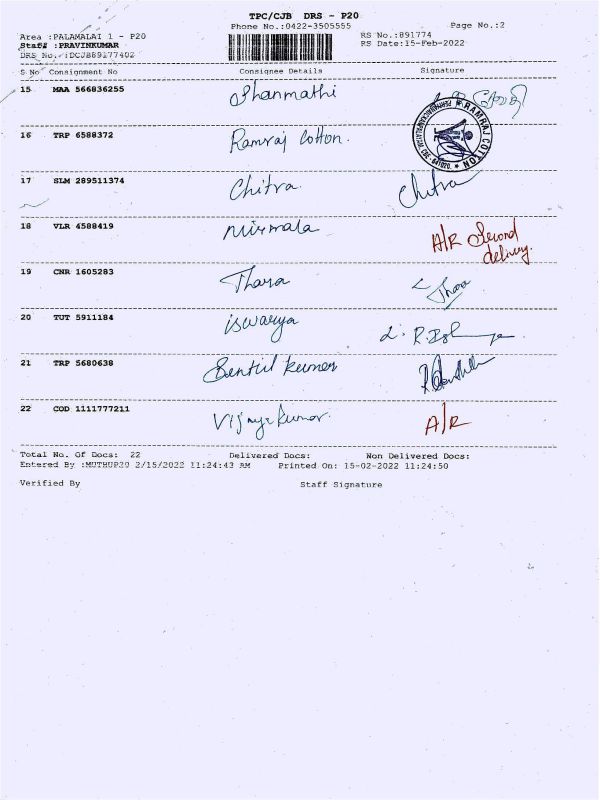 TPC/CJB DRS - P20
Phone No.:0422-3505555 Page No.:2
Area :PALAMALAI 1 - P20 RS No.:891774
Staff :PRAVINKUMAR RS Date:15-Feb-2022
DRS No.:DCJB89177402
S No Consignment No Consignee Details Signature
15 MAA 566836255 Shanmathi
16 TRP 6588372 Ramraj Cotton. RAMRAJ COTTON
17 SLM 289511374 Chitra Chitra
18 VLR 4588419 Nirmala A/R Second
delivery.
19 CNR 1605283 Thara Thara
20 TUT 5911184 iswarya
21 TRP 5680638 Senthil kumar
22 COD 1111777211 Vijayakumar. A/R
Total No. Of Docs: 22 Delivered Docs: Non Delivered Docs:
Entered By :MUTHUP20 2/15/2022 11:24:43 AM Printed On: 15-02-2022 11:24:50
Verified By Staff Signature